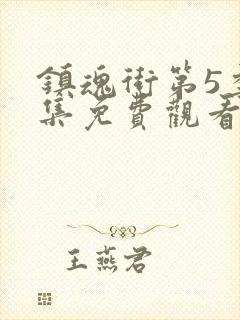 鎮魂街第5季
集免費觀看
王燕君